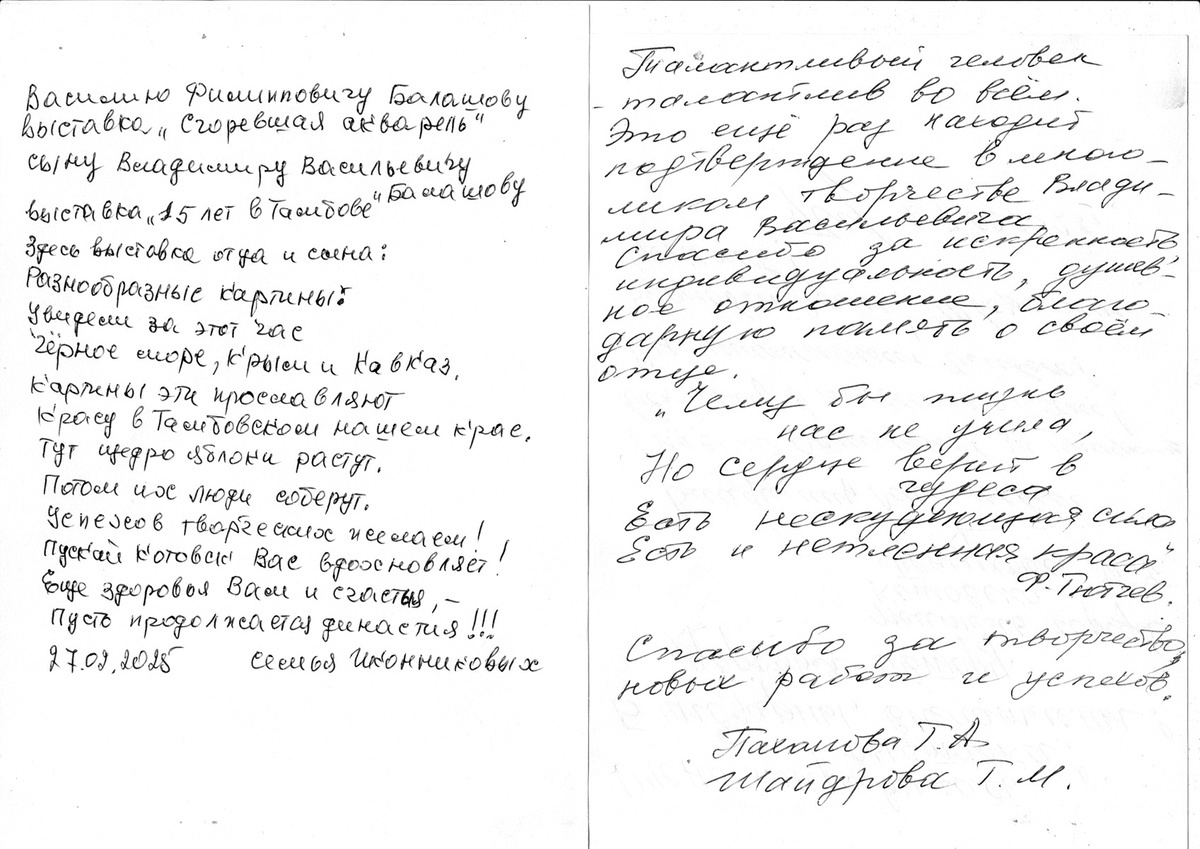 Василию Филипповичу Балашову
выставка „Сгоревшая акварель"
сыну Владимиру Васильевичу
Балашову
выставка „15 лет в Тамбове"
Здесь выставка отца и сына:
Разнообразные картины:
Увидели за этот час
Чёрное море, Крым и Кавказ.
Картины эти прославляют
Красу в Тамбовском нашем крае.
Тут щедро яблоки растут.
Потом их люди соберут.
Успехов творческих желаем!
Пускай Котовск Вас вдохновляет!
Еще здоровья Вам и счастья, –
Пусть продолжается династия!!!
27.02.2025 семья Иконниковых
Талантливый человек
- талантлив во всём.
Это ещё раз находит
подтверждение в много-
ликом творчестве Влади-
мира Васильевича.
Спасибо за искренность
индивидуальность, душев-
ное отношение, благо-
дарную память о своём
отце.
„Чему бы жизнь
нас не учила,
Но сердце верит в
чудеса
Есть нескудеющая сила
Есть и нетленная краса"
Ф. Тютчев.
Спасибо за творчество,
новых работ и успехов.
Т.А.
Шайдрова Т. М.